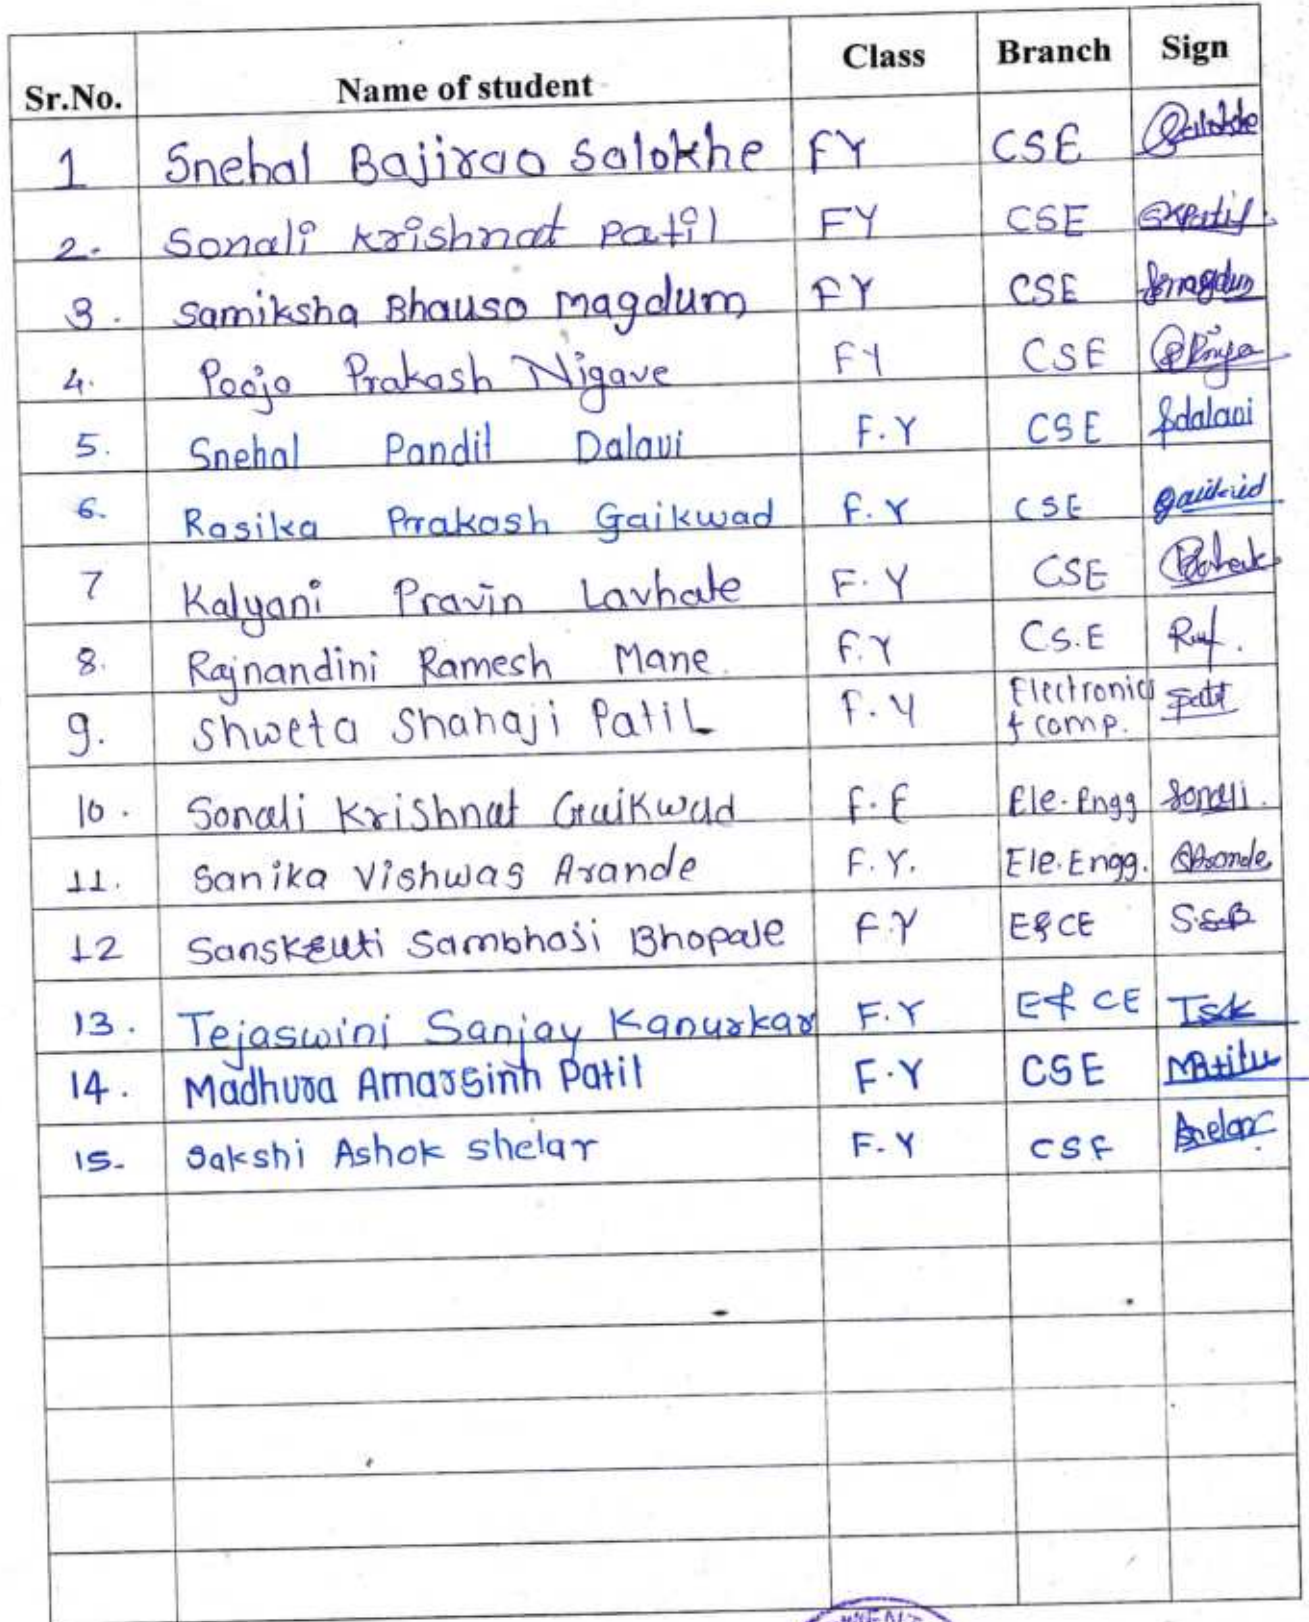 Sr.No. Name of student Class Branch Sign
1 Snehal Bajirao Salokhe FY CSE Salokhe
2. Sonali Krishnat Patil FY CSE SKPatil
3. Samiksha Bhauso Magdum FY CSE Smagdum
4. Pooja Prakash Nigave FY CSE
5. Snehal Pandit Dalavi F.Y CSE Sdalavi
6. Rasika Prakash Gaikwad F.Y CSE
7 Kalyani Pravin Lavhate F.Y CSE
8. Rajnandini Ramesh Mane. F.Y C.S.E
9. Shweta Shahaji Patil F.Y Electronics
& comp.
10. Sonali Krishnat Gaikwad F.E Ele.Engg Sonali.
11. Sanika Vishwas Arande F.Y. Ele.Engg. SArande
12 Sanskruti Sambhaji Bhopale F.Y E&CE S.S.B
13. Tejaswini Sanjay Kanurkar F.Y E& CE Tsk
14. Madhura Amarsinh Patil F.Y CSE
15. Sakshi Ashok Shelar F.Y CSE